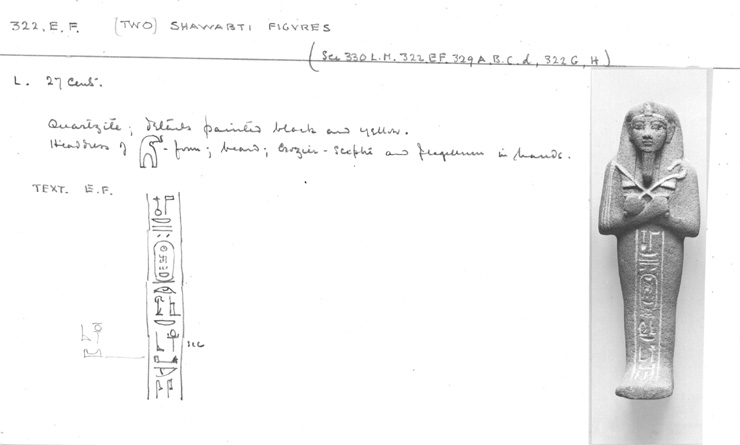 322, E. F. (TWO) SHAWABTI FIGVRES
(See 330 L.M, 322, E.F. 329 A, B, C, d, 322 G, H)
L. 27 Cent.
Quartzite; details painted black and yellow.
Headdress of - form; beard; Crozier-Sceptre and flagellum in hands.
TEXT. E.F.
sic